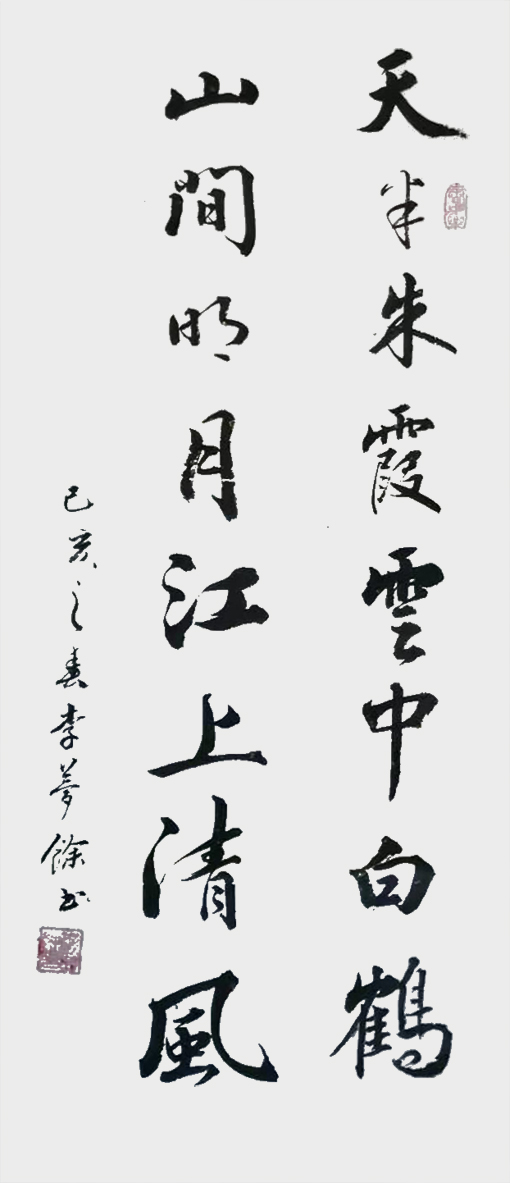 天半朱霞雲中白鶴
山間明月江上清風
己亥之春李夢餘书